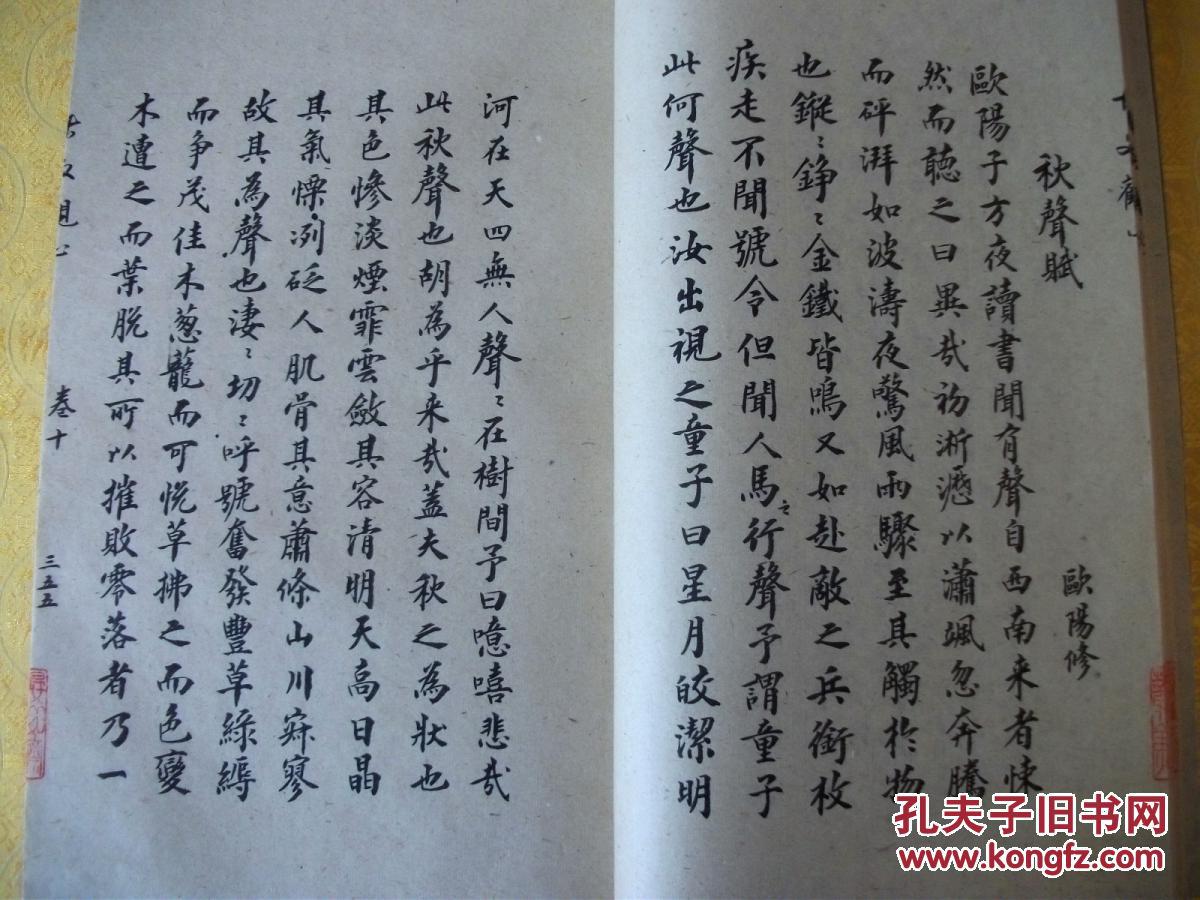 秋聲賦
歐陽修
歐陽子方夜讀書聞有聲自西南来者悚
然而聽之曰異哉初淅瀝以瀟颯忽奔騰
而砰湃如波濤夜驚風雨驟至其觸於物
也鏦〻錚〻金鐵皆鳴又如赴敵之兵銜枚
疾走不聞號令但聞人馬之行聲予謂童子
此何聲也汝出視之童子曰星月皎潔明
河在天四無人聲〻在樹間予曰噫嘻悲哉
此秋聲也胡為乎来哉蓋夫秋之為狀也
其色慘淡煙霏雲斂其容清明天高日晶
其氣慄冽砭人肌骨其意蕭條山川寂寥
故其為聲也淒〻切〻呼號奮發豐草綠縟
而爭茂佳木葱蘢而可悅草拂之而色變
木遭之而葉脫其所以摧敗零落者乃一
卷十
三五五
孔夫子旧书网
www.kongfz.com